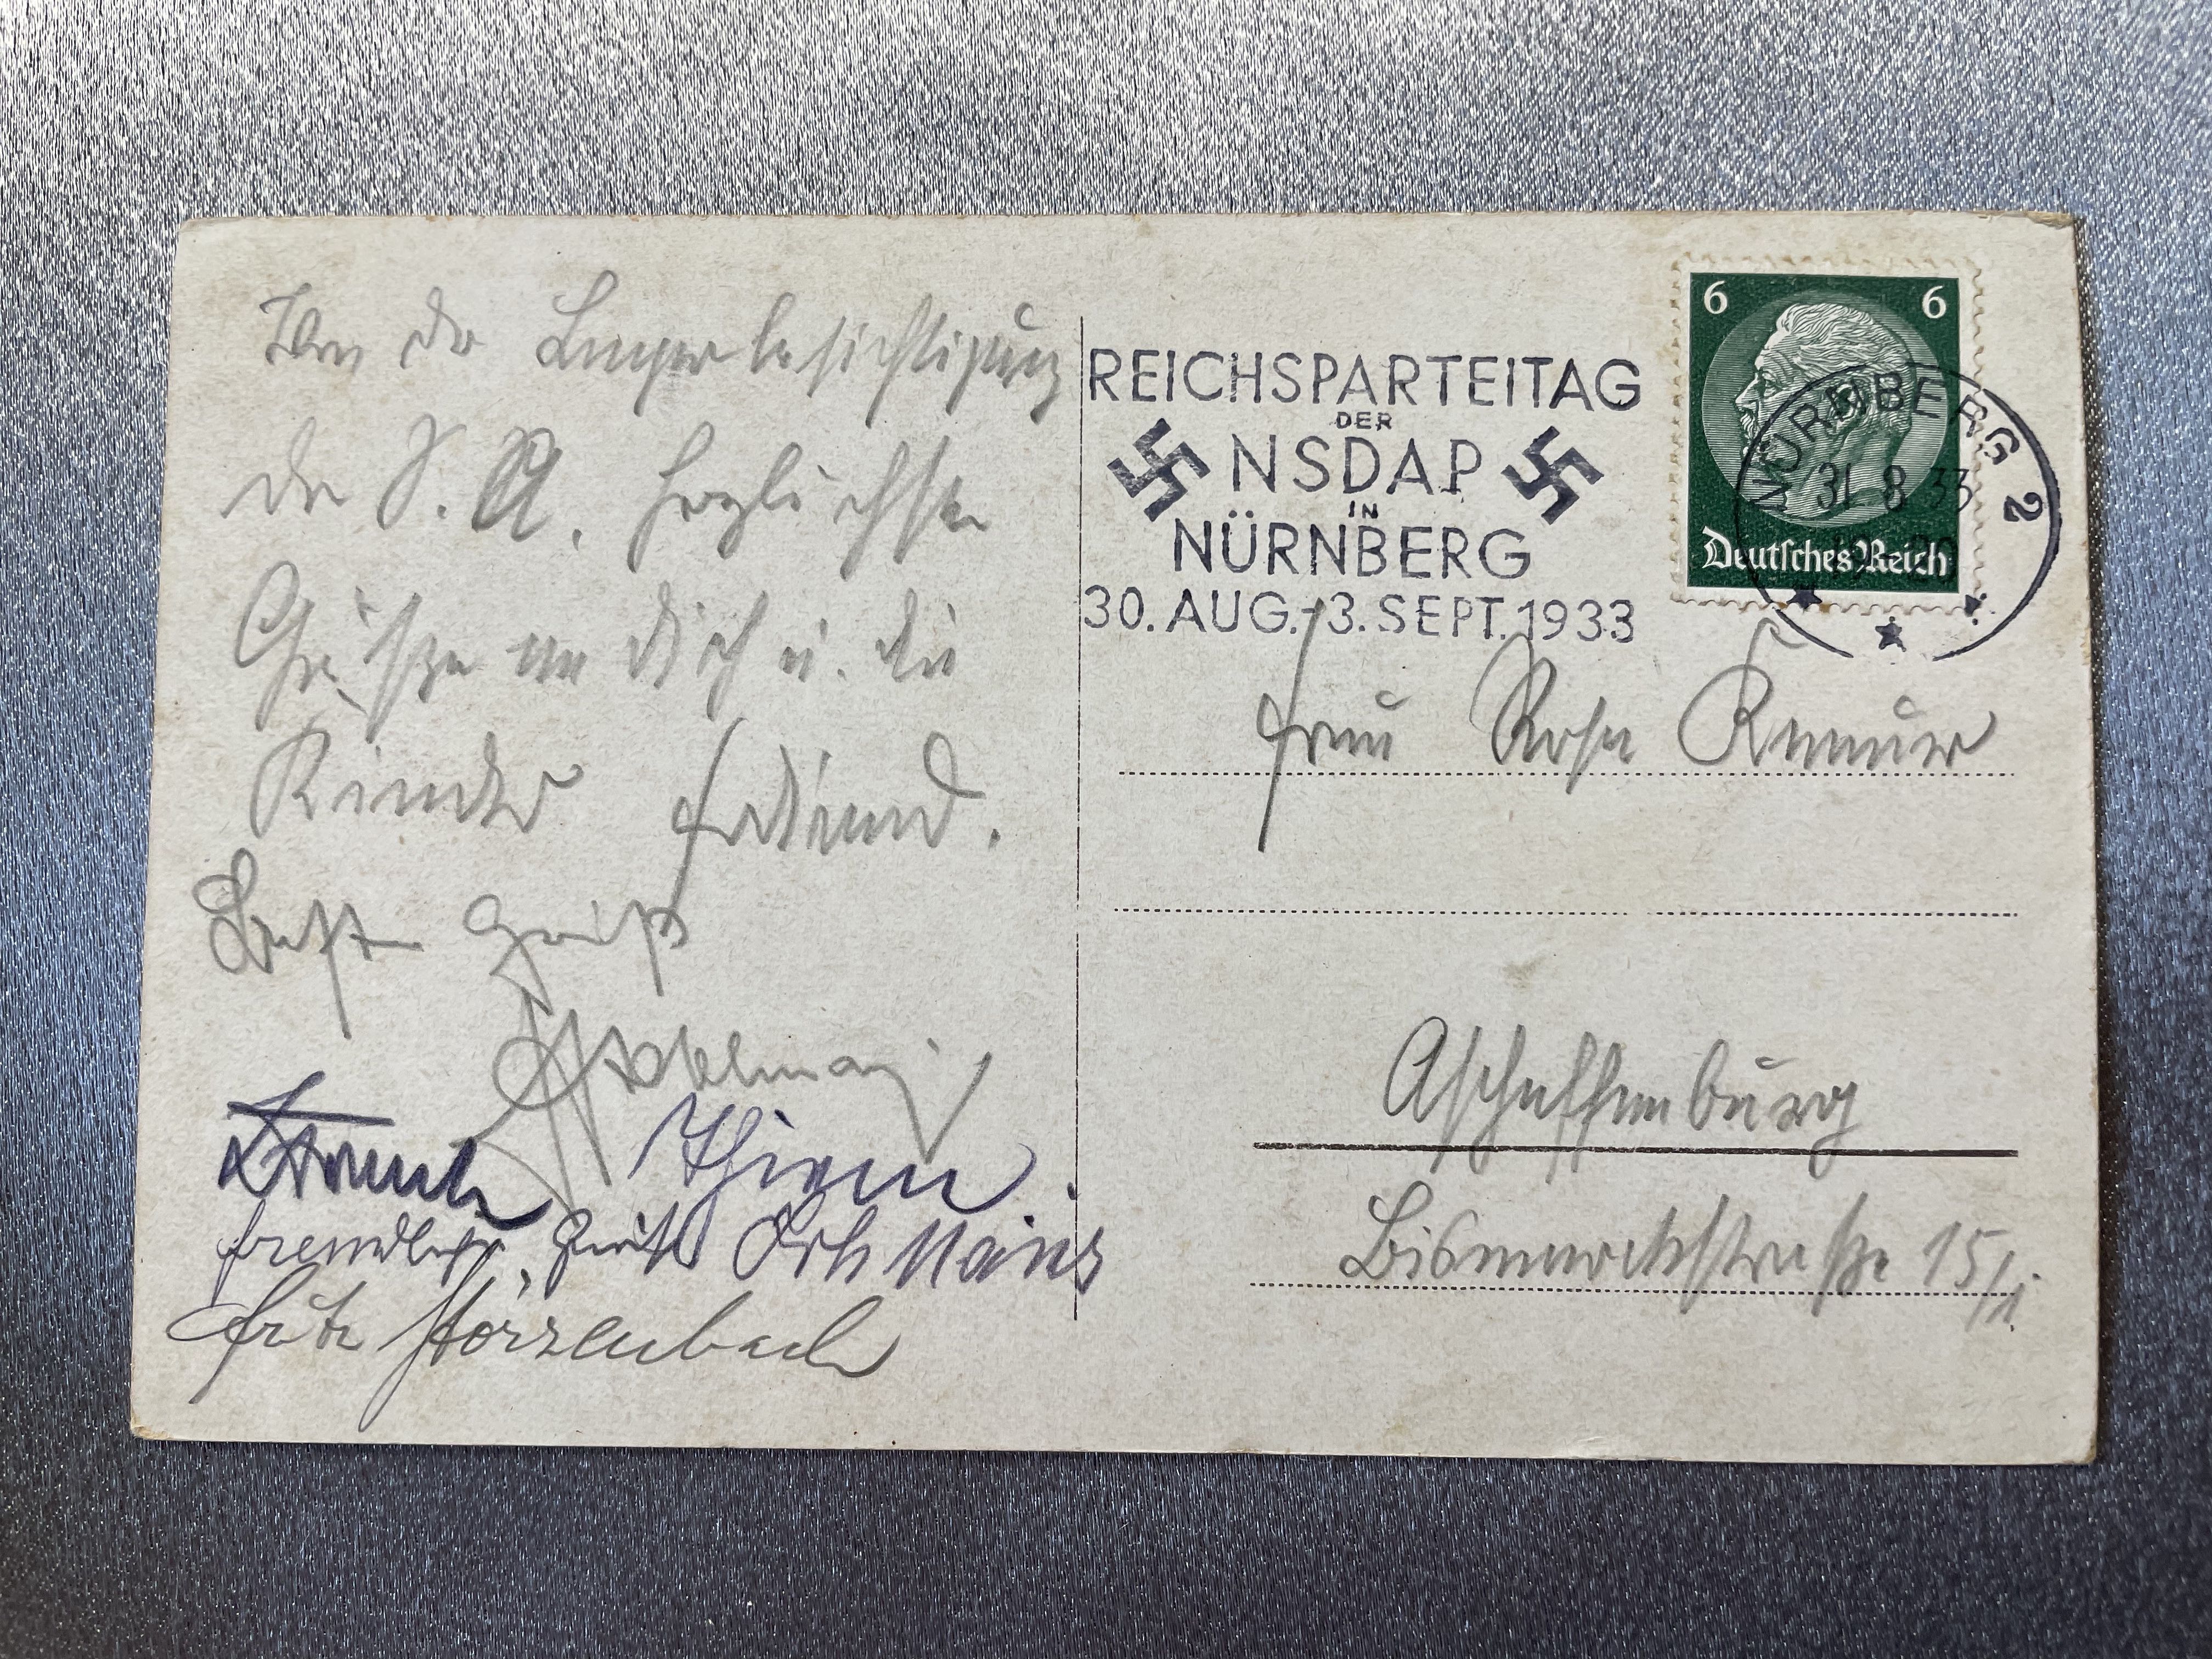 Von der Lagerbesichtigung
der S.A. herzlichste
Grüsze an Dich u. die
Kinder Ferdinand.
Beste Grüße
Thiem.
freundlichst grüßt
Fritz Störzenbach
REICHSPARTEITAG
DER
NSDAP
IN
NÜRNBERG
30. AUG.-3. SEPT. 1933
6 6
Deutsches Reich
NÜRNBERG 2
31 8 33
Frau Rosa
Aschaffenburg
Bismarckstrasze 15/I.